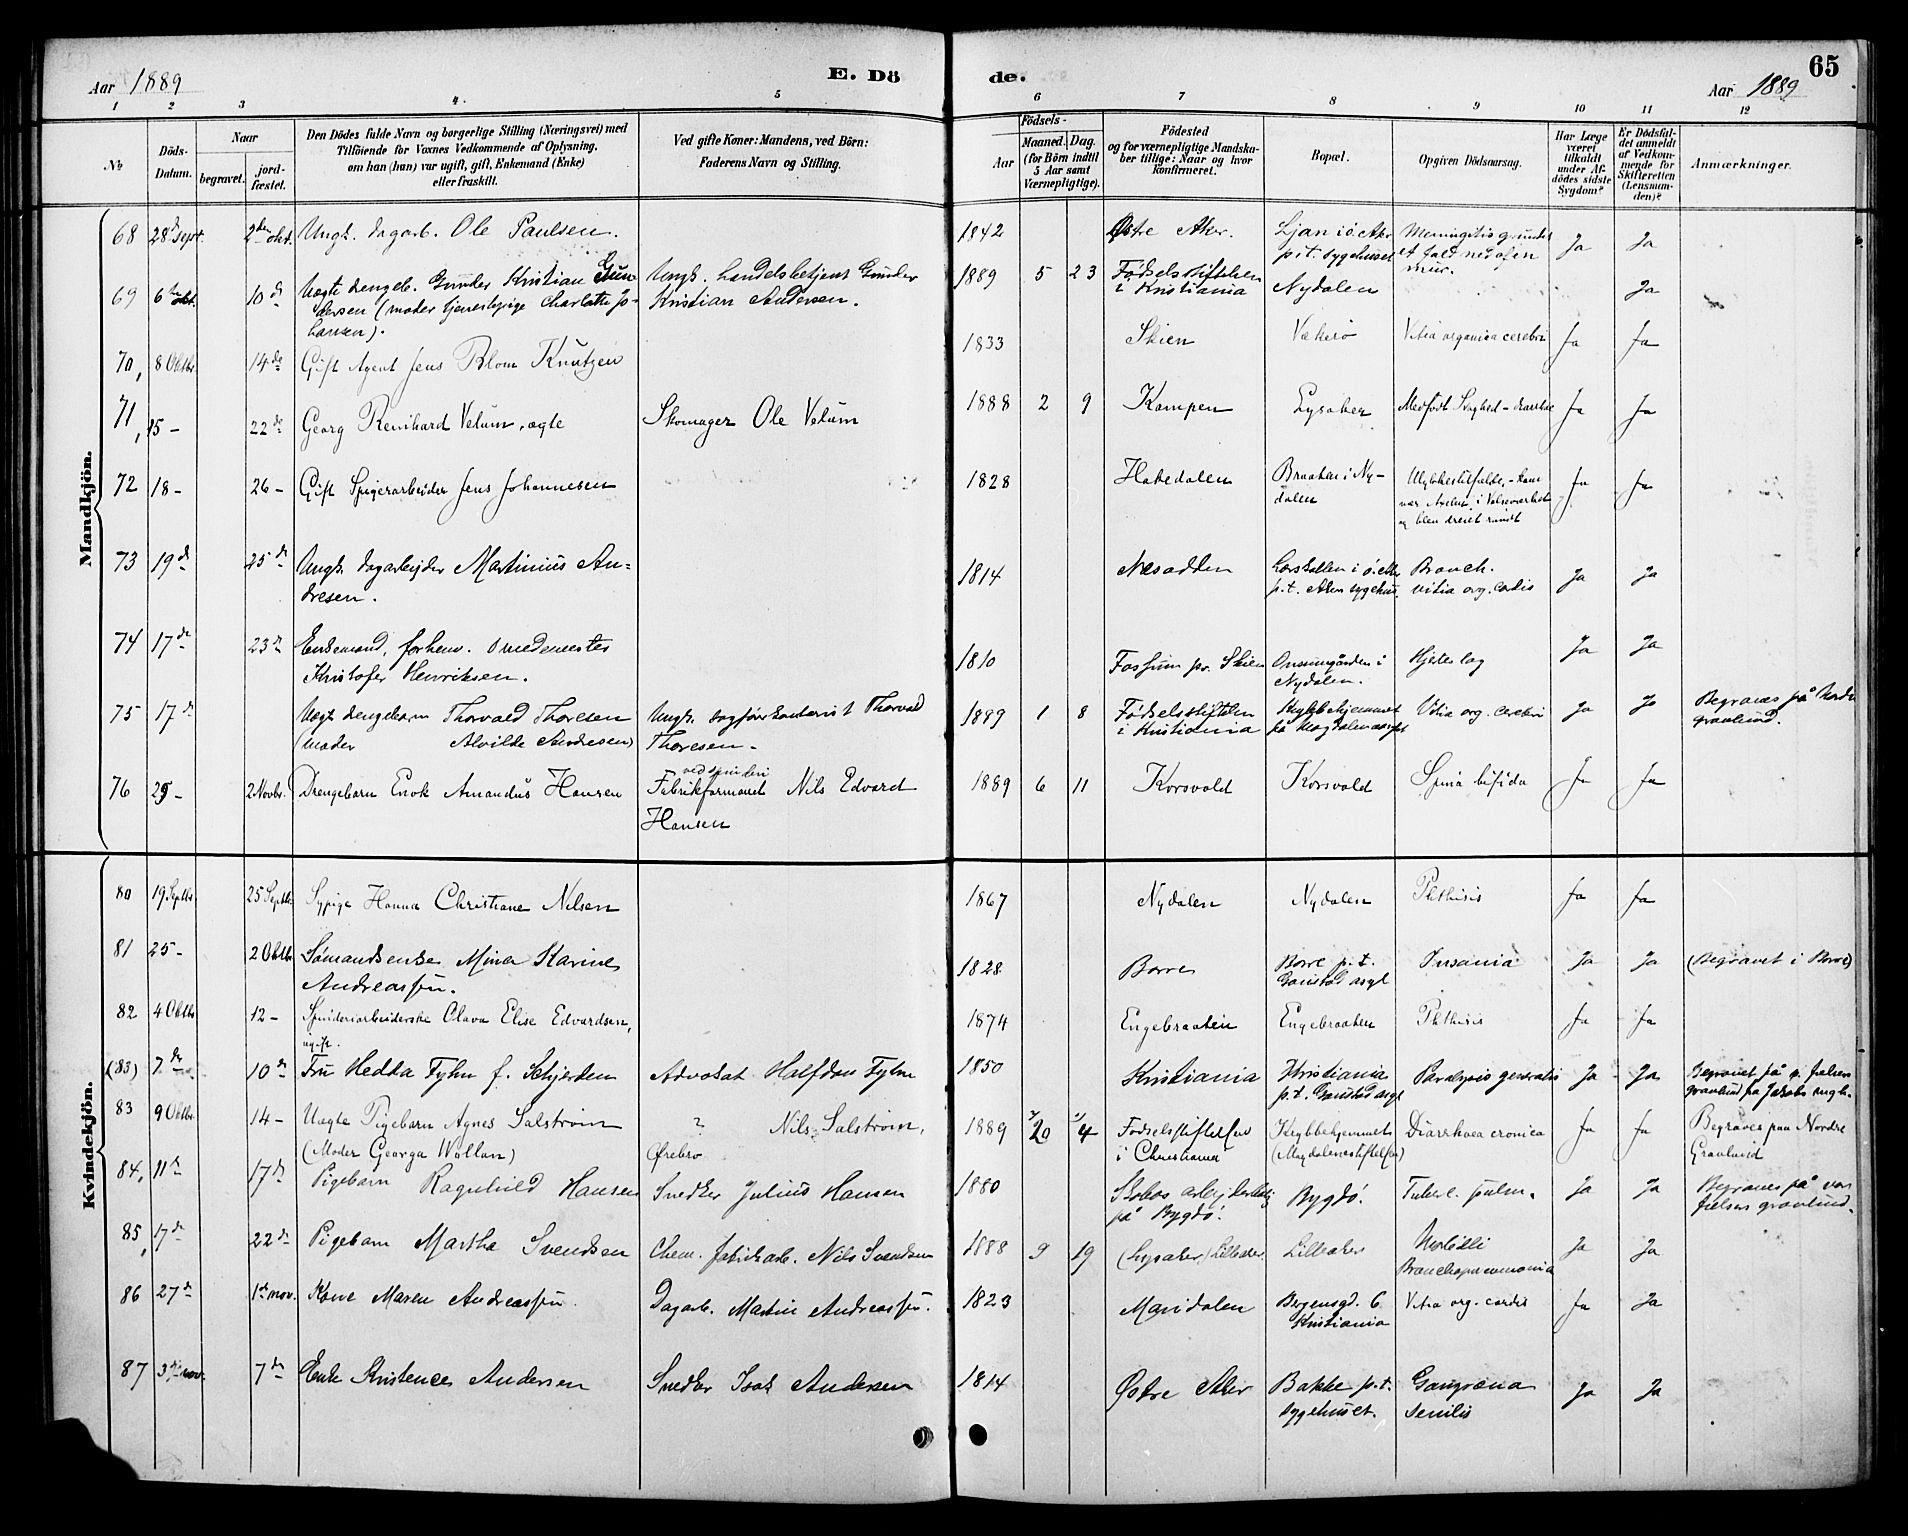 Aar 1889
E. Dö
de.
65
Aar 1889
1 2 3 4. 5 6 7 8 9 10 11 12
№
Döds-
Datum.
Naar
begravet.
jord-
fæstet.
Den Dödes fulde Navn og borgerlige Stilling (Næringsvei) med
Tilföiende for Voxnes Vedkommende af Oplysning,
om han (hun) var ugift, gift, Enkemand (Enke)
eller fraskilt.
Ved gifte Koner: Mandens, ved Börn:
Faderens Navn og Stilling.
Födsels-
Aar
Maaned. Dag.
(for Börn indtil
5 Aar samt
Værnepligtige).
Födested
og for værnepligtige Mandska-
ber tillige: Naar og hvor
konfirmeret.
Bopæl.
Opgiven Dödsaarsag.
Har Læge
været
tilkaldt
under Af-
dödes sidste
Sygdom?
Er Dödsfal-
det anmeldt
af Vedkom-
mende for
Skifteretten
(Lensman-
den)?
Anmærkninger.
Mandkjön.
68 28de sept. 2den okt. Ungk. dagarb. Ole Paulsen. 1842 Østre Aker. Ljan i ö. Aker Meningitis grundet Ja Ja
p.t. sygehuset et fald ned af en
mur.
69 6te okt. 10de Uægte drengeb. Gunder Kristian Gun- Ungk. handelsbetjent Gunder 1889 5 23 Fødselsstiftelsen Nydalen Ja
dersen (moder tjenestepige Charlotte Jo- Kristian Andersen. i Kristiania
hansen).
70, 8 Oktbr. 14de Gift Agent Jens Blom Knutzen 1833 Skien Vækerö Vitia organica cerebri Ja Ja
71, 15 - 22de Georg Reinhard Velum, ægte Skomager Ole Velum 1888 2 9 Kampen Lysaker Medfødt Svaghed - diarrhoe Ja Ja
72 18 - 26 - Gift Spigerarbeider Jens Johannesen 1828 Hakedalen Braaten i Ny- Ulykkestilfælde, - kom Ja Ja
dalen nær Axelen i Valseværket
og blev dreiet rundt
73 19de 25de Ungk. dagarbejder Martinius An- 1814 Næsodden p.t. Aker sygehus. Bronch. Ja Ja
dresen. vitia org. cordis
74 17de 23de Enkemand, forhenv. smedemester 1810 Fossum pr. Skien Onsumgården i Hjerteslag Ja Ja
Kristofer Henriksen. Nydalen.
75 17de Uægte drengebarn Thorvald Thoresen Ungk. sagførerkontorist Thorvald 1889 1 8 Fødselsstiftelsen Krybbehjemmet Vitia org. cerebri Ja Ja Begraves på Nordre
(moder Alvilde Andresen) Thoresen - i Kristiania på Magdalenastift gravlund.
76 25 - 2 Novbr. Drengebarn Enok Amandus Hansen Fabrikformand ved spinderi Nils Edvard 1889 6 11 Korsvold Korsvold Spina bifida Ja Ja
Hansen
Kvindekjön.
80 19 Septbr 25 Septbr Sypige Hanna Christiane Nilsen 1867 Nydalen Nydalen Phthisis Ja Ja
81 25 - 2 Oktbr Sømandsenke Mina Karine 1828 Borre Borre p.t. Insania Ja Ja (Begravet i Borre)
Andreassen. Gaustad asyl
82 4 Oktbr 12 - Spinderiarbeiderske Olava Elise Edvardsen, 1874 Engebraaten Engebraaten Phthisis Ja Ja
ugift.
(83) 7de 10de Fru Hedda Fyhn f. Schjerden Advokat Halfdan Fyhn 1850 Kristiania Kristiania Paralysis generalis Ja Ja Begravet på v. frelsers
p.t. Gaustad asyl gravlund på Jakobs mgh.
83 9 Oktbr 14 - Uægte Pigebarn Agnes Salstrøm ? Nils Salstrøm, 1889 20 4 Fødselsstiftelsen Krybbehjemmet Diarrhoea cronica Ja Ja Begraves paa Nordre
(Moder Georga Wollan) Ørebro i Christiania (Magdalenestiftelsen) Gravlund
84, 11te 17de Pigebarn Ragnhild Hansen Snedker Julius Hansen 1880 på Bygdö. Bygdö. Tuberc. pulm. Ja Ja Begraves på vor
frelsers gravlund.
85, 17de 22de Pigebarn Martha Svendsen Chem. fabrikarb. Nils Svendsen 1888 9 19 (Lysaker) Lilleaker Lilleaker Morbilli Ja Ja
Bronchopneumonia
86 27de 1ste nov. Kone Maren Andreassen Dagarb. Martin Andreassen. 1823 Maridalen Bergensgd. 6 Vitia org. cordis Ja Ja
Kristiania
87 3die nov. 7de Enke Kristence Andersen Snedker Isak Andersen 1814 Østre Aker Bakke p.t. Gangræna Ja Ja
sygehuset. senilis